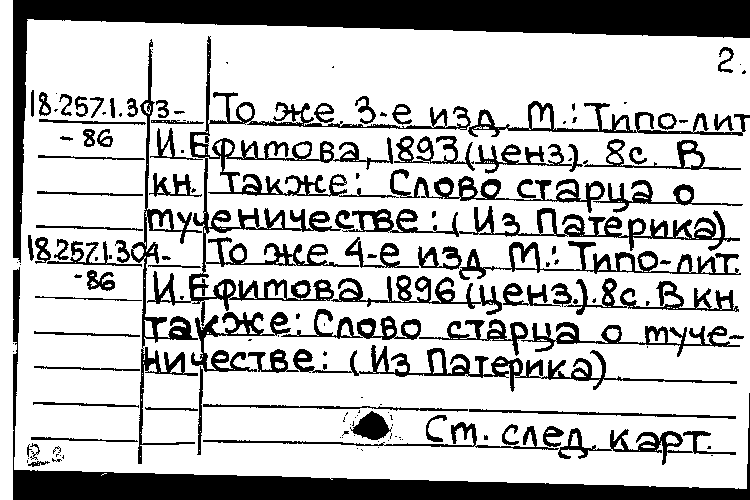 2.
18.257.1.303- То же. 3-е изд. М.: Типо-лит
-86 И. Ефимова, 1893 (ценз). 8с. В
кн. также: Слово старца о
мученичестве: (Из Патерика)
18.257.1.304- То же. 4-е изд. М.: Типо-лит.
-86 И. Ефимова, 1896 (ценз.). 8с. В кн.
также: Слово старца о муче-
ничестве: (Из Патерика)
См. след. карт.